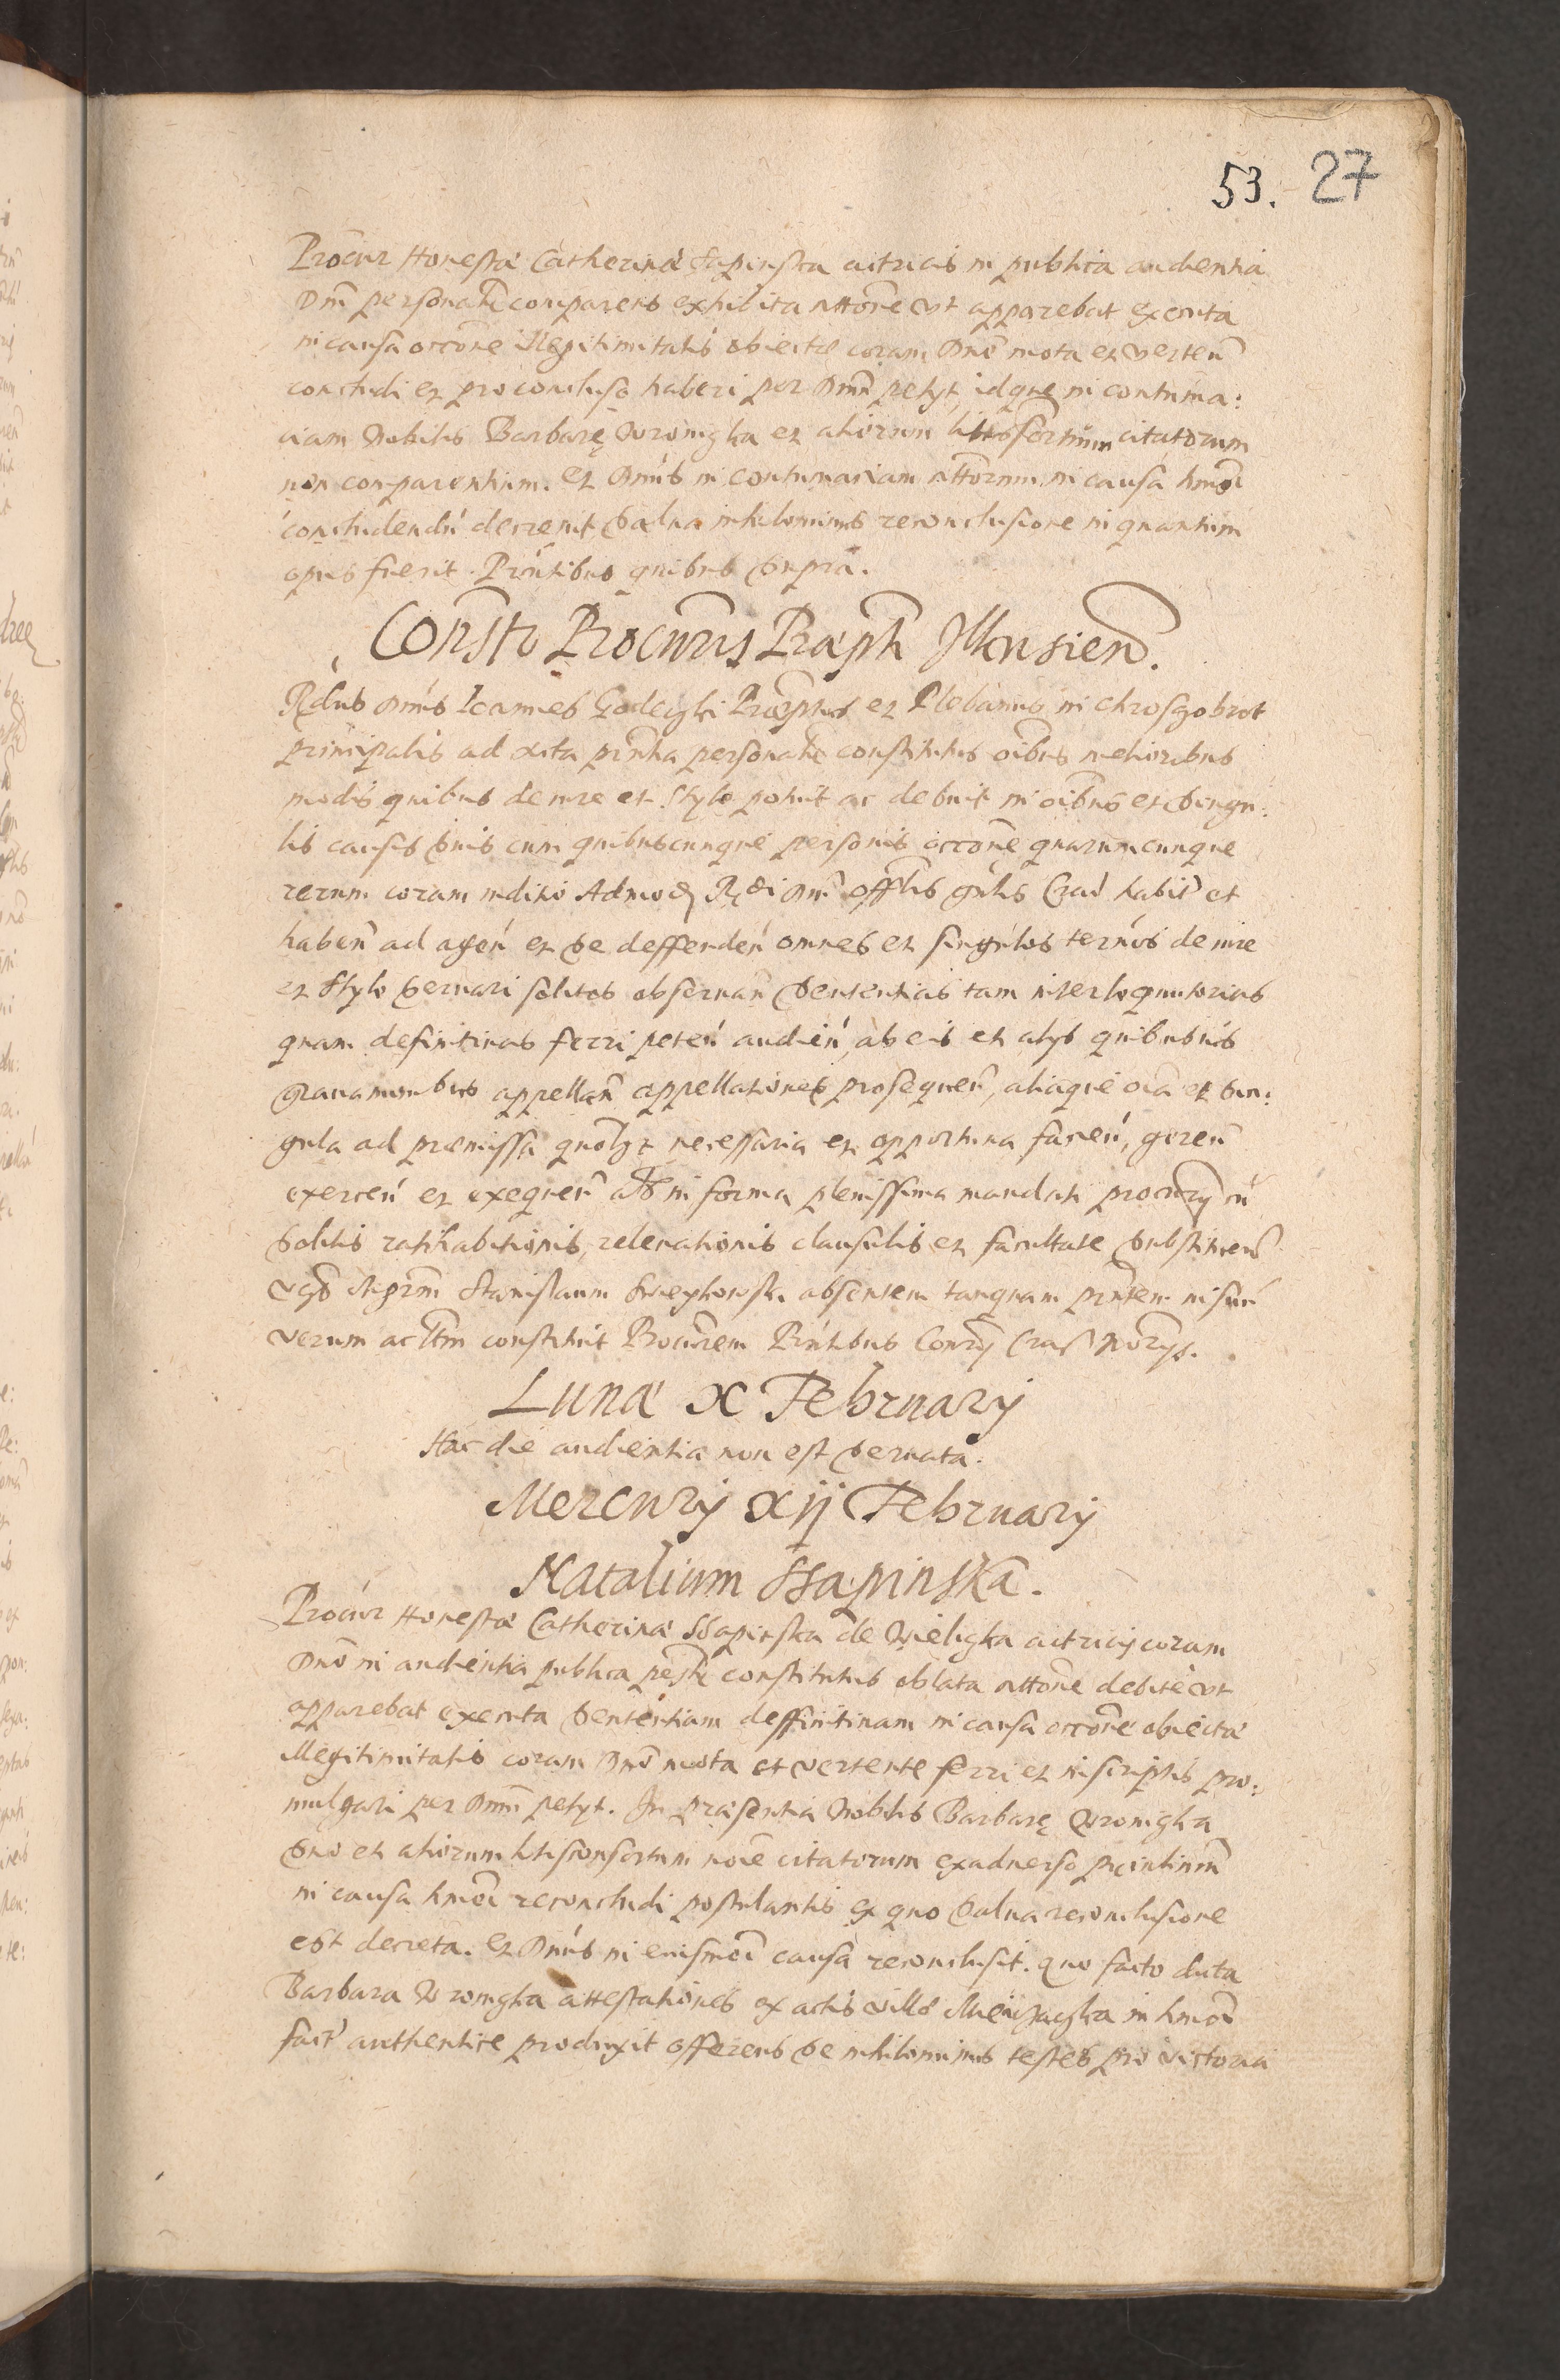 53. 27
Procur Honestæ Catherinæ Sapinska actricis in publica audientia
Dni personalr comparens exhibita rttone vt apparebat executa
in causa occone illegitimitatis obiectæ coram Dno mota et verten
concludi et pro concluso haberi per Dnm petyt, idque in contuma:
ciam Nobilis Barbarę Wronigka et aliorum litisconsortium citatorum
non comparentium. et Dnus in contumaciam rttorum in causa hmoi
concludendu decrevit salva nihilominus reconclusione in quantum
opus fuerit. Pntibus quibus supra.
Constō Procuris Præpti Ilkusien.
Rdus Dnus Ioannes Præptus et Plebanus in Chrosgobrot
principalis ad acta pntia personalr constitutus oibus melioribus
modis quibus de iure et stylo potuit ac debuit in oibus et singu:
lis causis suis cum quibuscunque personis occone quarumcunque
rerum coram iuditio Admod Rdi Dni Offlis gnlis Crac habit et
haben ad agen et se deffenden omnes et singulos termos de iure
et stylo servari solitos observan sententias tam interloqutorias
quam definitivas ferri peten audien, ab eis et alys quibusvis
gravaminibus appellan appellationes prosequen, aliaque oia et sin:
gula ad præmissa quolzt necessaria et opportuna facien, geren
exercen et exequen in forma plenissima mandati procury cu
solitis ratihabitionis, relevationis clausulis et facultate substituen
Mgrm Stanislaum absentem tanquam pntem in suu
verum ac lttm constituit Procurem Pntibus Cony Crac Norys.
Lunæ x February
Hac die audientia non est servata.
Mercury xij February
Natalium Ssapinska.
Procur Honestæ Catherinæ Ssapinska de Wieligka actricis coram
Dno in audientia publica psnlr constitutus oblata rttone debite vt
apparebat executa sententiam deffinitivam in causa occone obiectæ
illegitimitatis coram Dno mota et vertente ferri et in scriptis pro:
mulgari per Dnm petyt. In præsentia Nobilis Barbarę Wronigka
suo et aliorum litisconsortum noie citatorum ex adverso principium
in causa hmoi reconcludi postulantis ex quo salva reconclusione
est decreta. et Dnus in eiusmoi causa reconclusit. quo facto dicta
Barbara Wronigka attestationes ex actis villæ in hmoi
fact authentice produxit offerens se nihilominus testes pro victoria